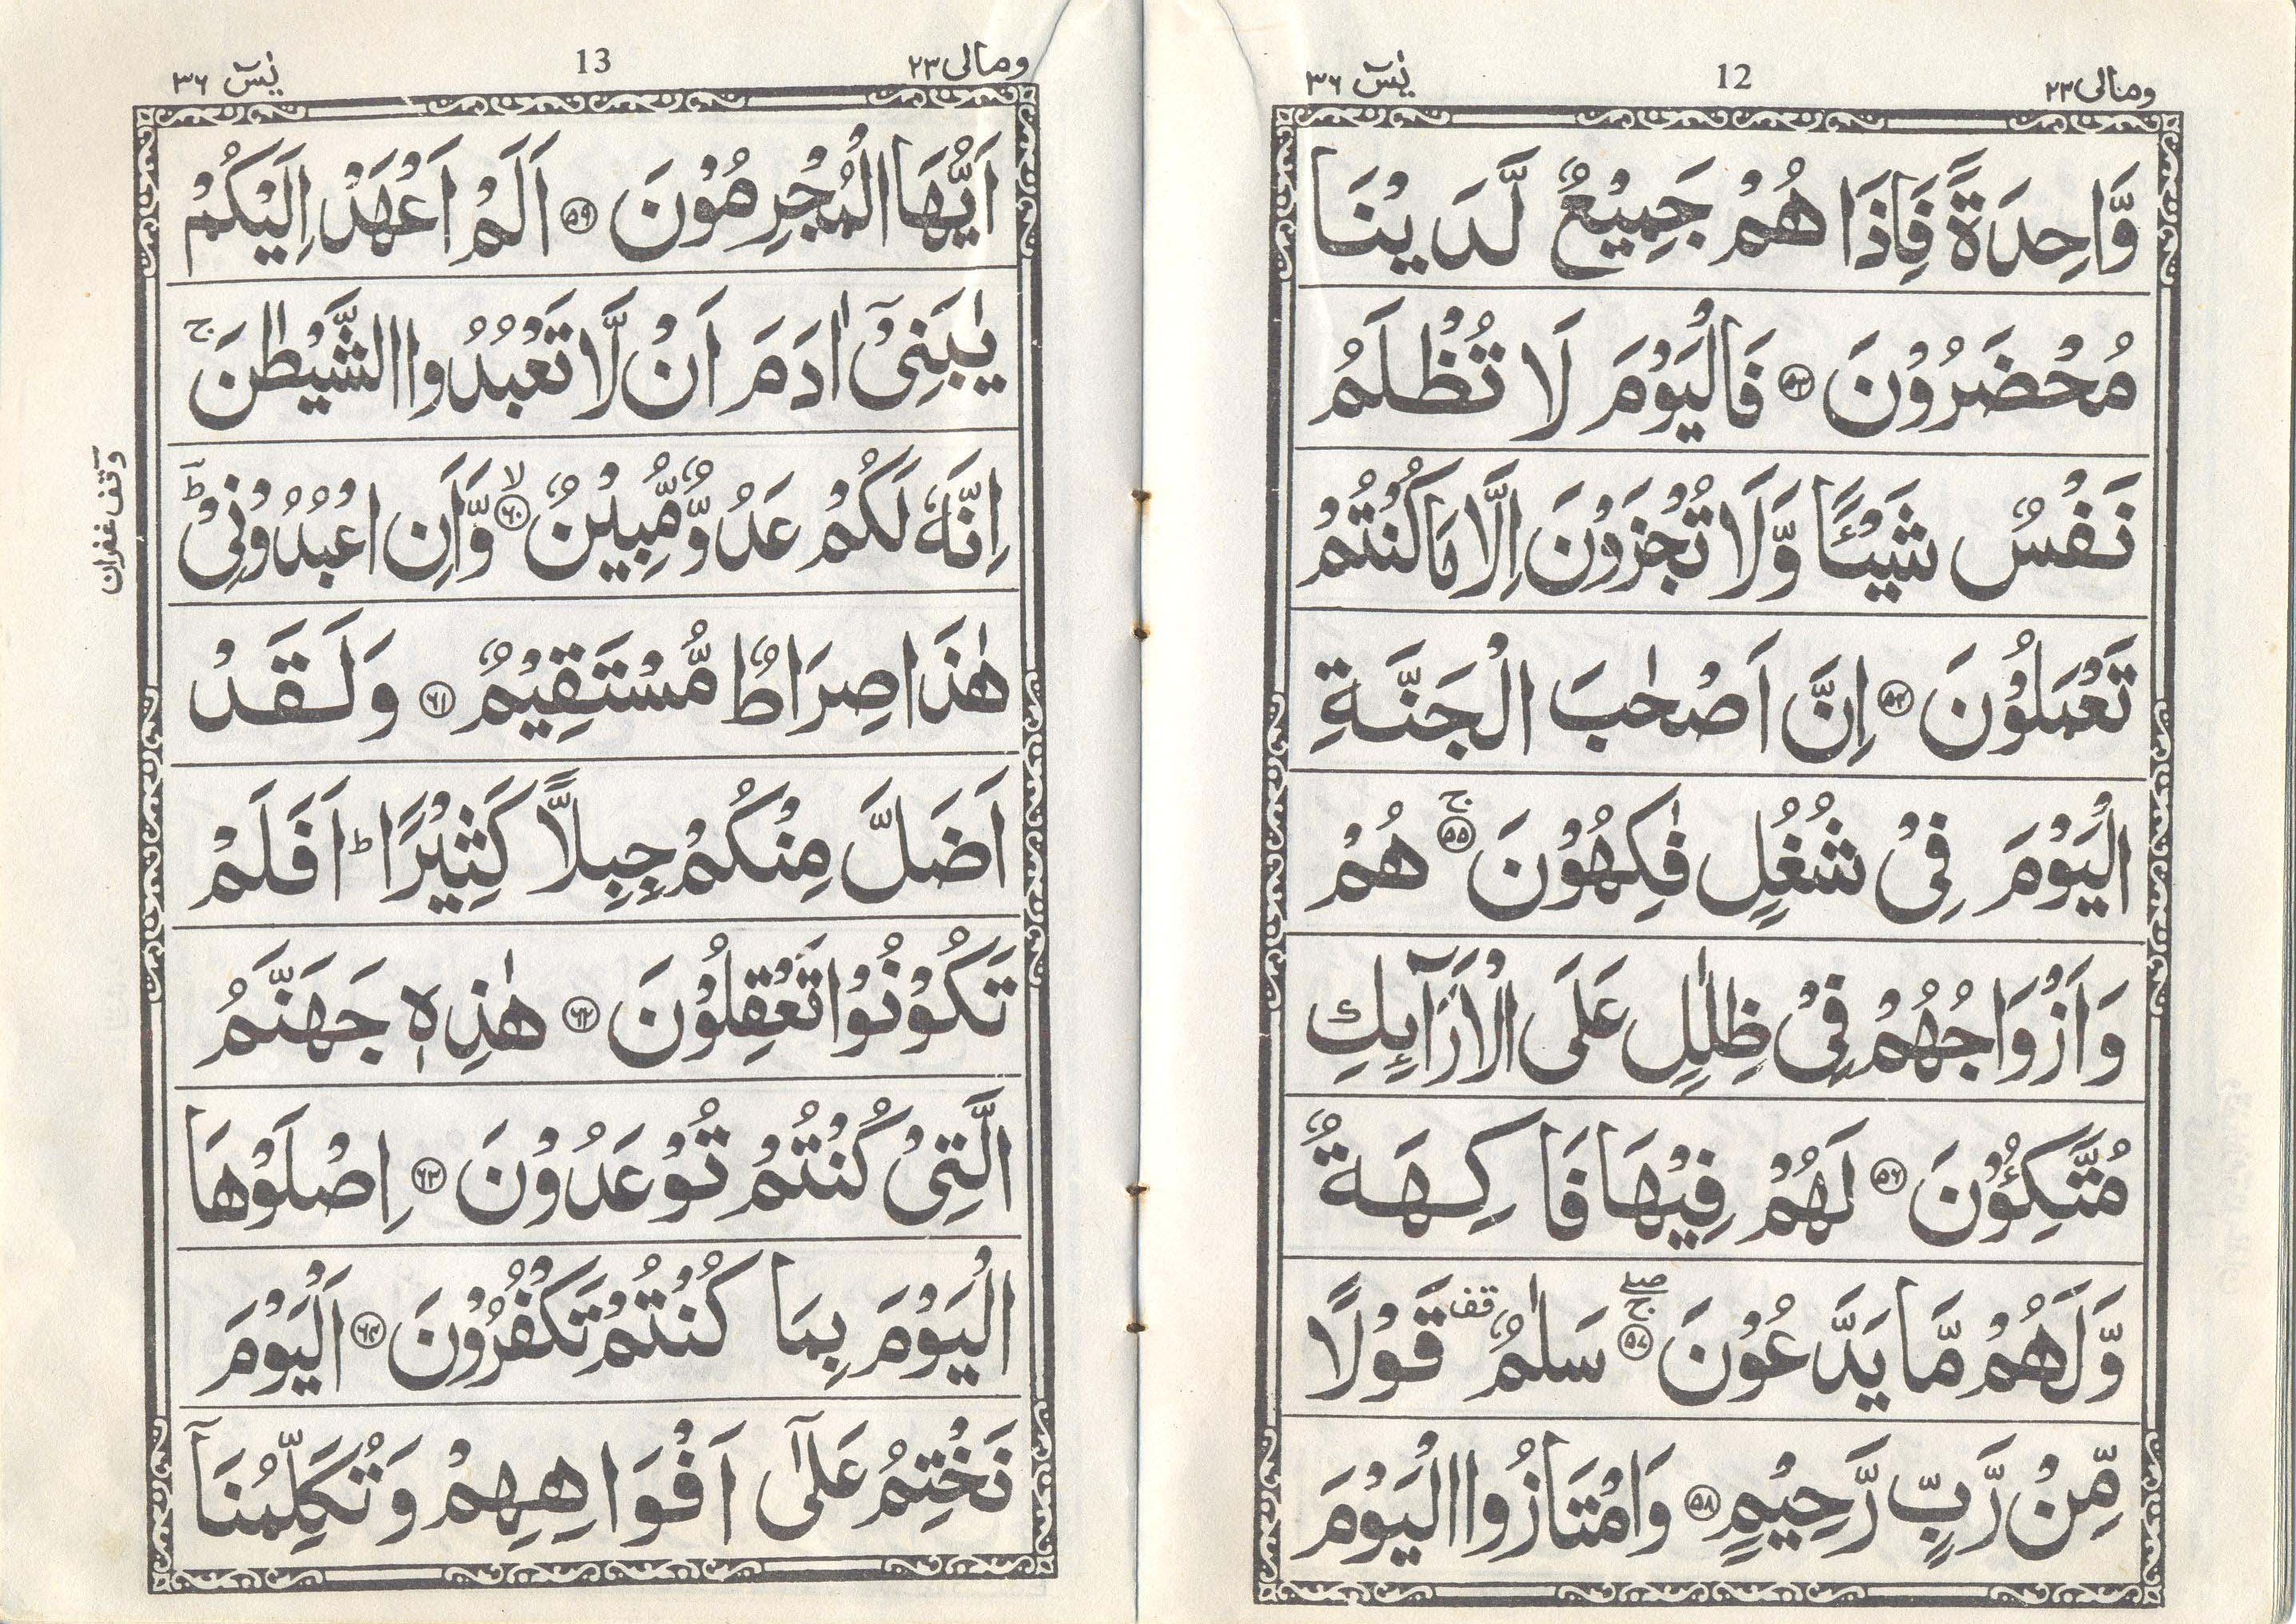 ومالی۲۳ 12 یٰسٓ ۳۶
وَّاحِدَةً فَاِذَا هُمْ جَمِيْعٌ لَّدَيْنَا
مُحْضَرُوْنَ ۝۵۳ فَالْيَوْمَ لَا تُظْلَمُ
نَفْسٌ شَيْـًٔا وَّلَا تُجْزَوْنَ اِلَّا مَا كُنْتُمْ
تَعْمَلُوْنَ ۝۵۴ اِنَّ اَصْحٰبَ الْجَنَّةِ
الْيَوْمَ فِيْ شُغُلٍ فٰكِهُوْنَ ۝۵۵ۚ هُمْ
وَاَزْوَاجُهُمْ فِيْ ظِلٰلٍ عَلَى الْاَرَآئِكِ
مُتَّكِـُٔوْنَ ۝۵۶ لَهُمْ فِيْهَا فَاكِهَةٌ
وَّلَهُمْ مَّا يَدَّعُوْنَ ۝۵۷ۚۖ سَلٰمٌ قف قَوْلًا
مِّنْ رَّبٍّ رَّحِيْمٍ ۝۵۸ وَامْتَازُوا الْيَوْمَ
ومالی۲۳ 13 یٰسٓ ۳۶
اَيُّهَا الْمُجْرِمُوْنَ ۝۵۹ اَلَمْ اَعْهَدْ اِلَيْكُمْ
يٰبَنِيْٓ اٰدَمَ اَنْ لَّا تَعْبُدُوا الشَّيْطٰنَ ۚ
اِنَّهٗ لَكُمْ عَدُوٌّ مُّبِيْنٌ ۝۶۰ۙ وَّاَنِ اعْبُدُوْنِيْ ؕ
هٰذَا صِرَاطٌ مُّسْتَقِيْمٌ ۝۶۱ وَلَقَدْ
اَضَلَّ مِنْكُمْ جِبِلًّا كَثِيْرًا ؕ اَفَلَمْ
تَكُوْنُوْا تَعْقِلُوْنَ ۝۶۲ هٰذِهٖ جَهَنَّمُ
الَّتِيْ كُنْتُمْ تُوْعَدُوْنَ ۝۶۳ اِصْلَوْهَا
الْيَوْمَ بِمَا كُنْتُمْ تَكْفُرُوْنَ ۝۶۴ اَلْيَوْمَ
نَخْتِمُ عَلٰٓى اَفْوَاهِهِمْ وَتُكَلِّمُنَآ
وقف غفران